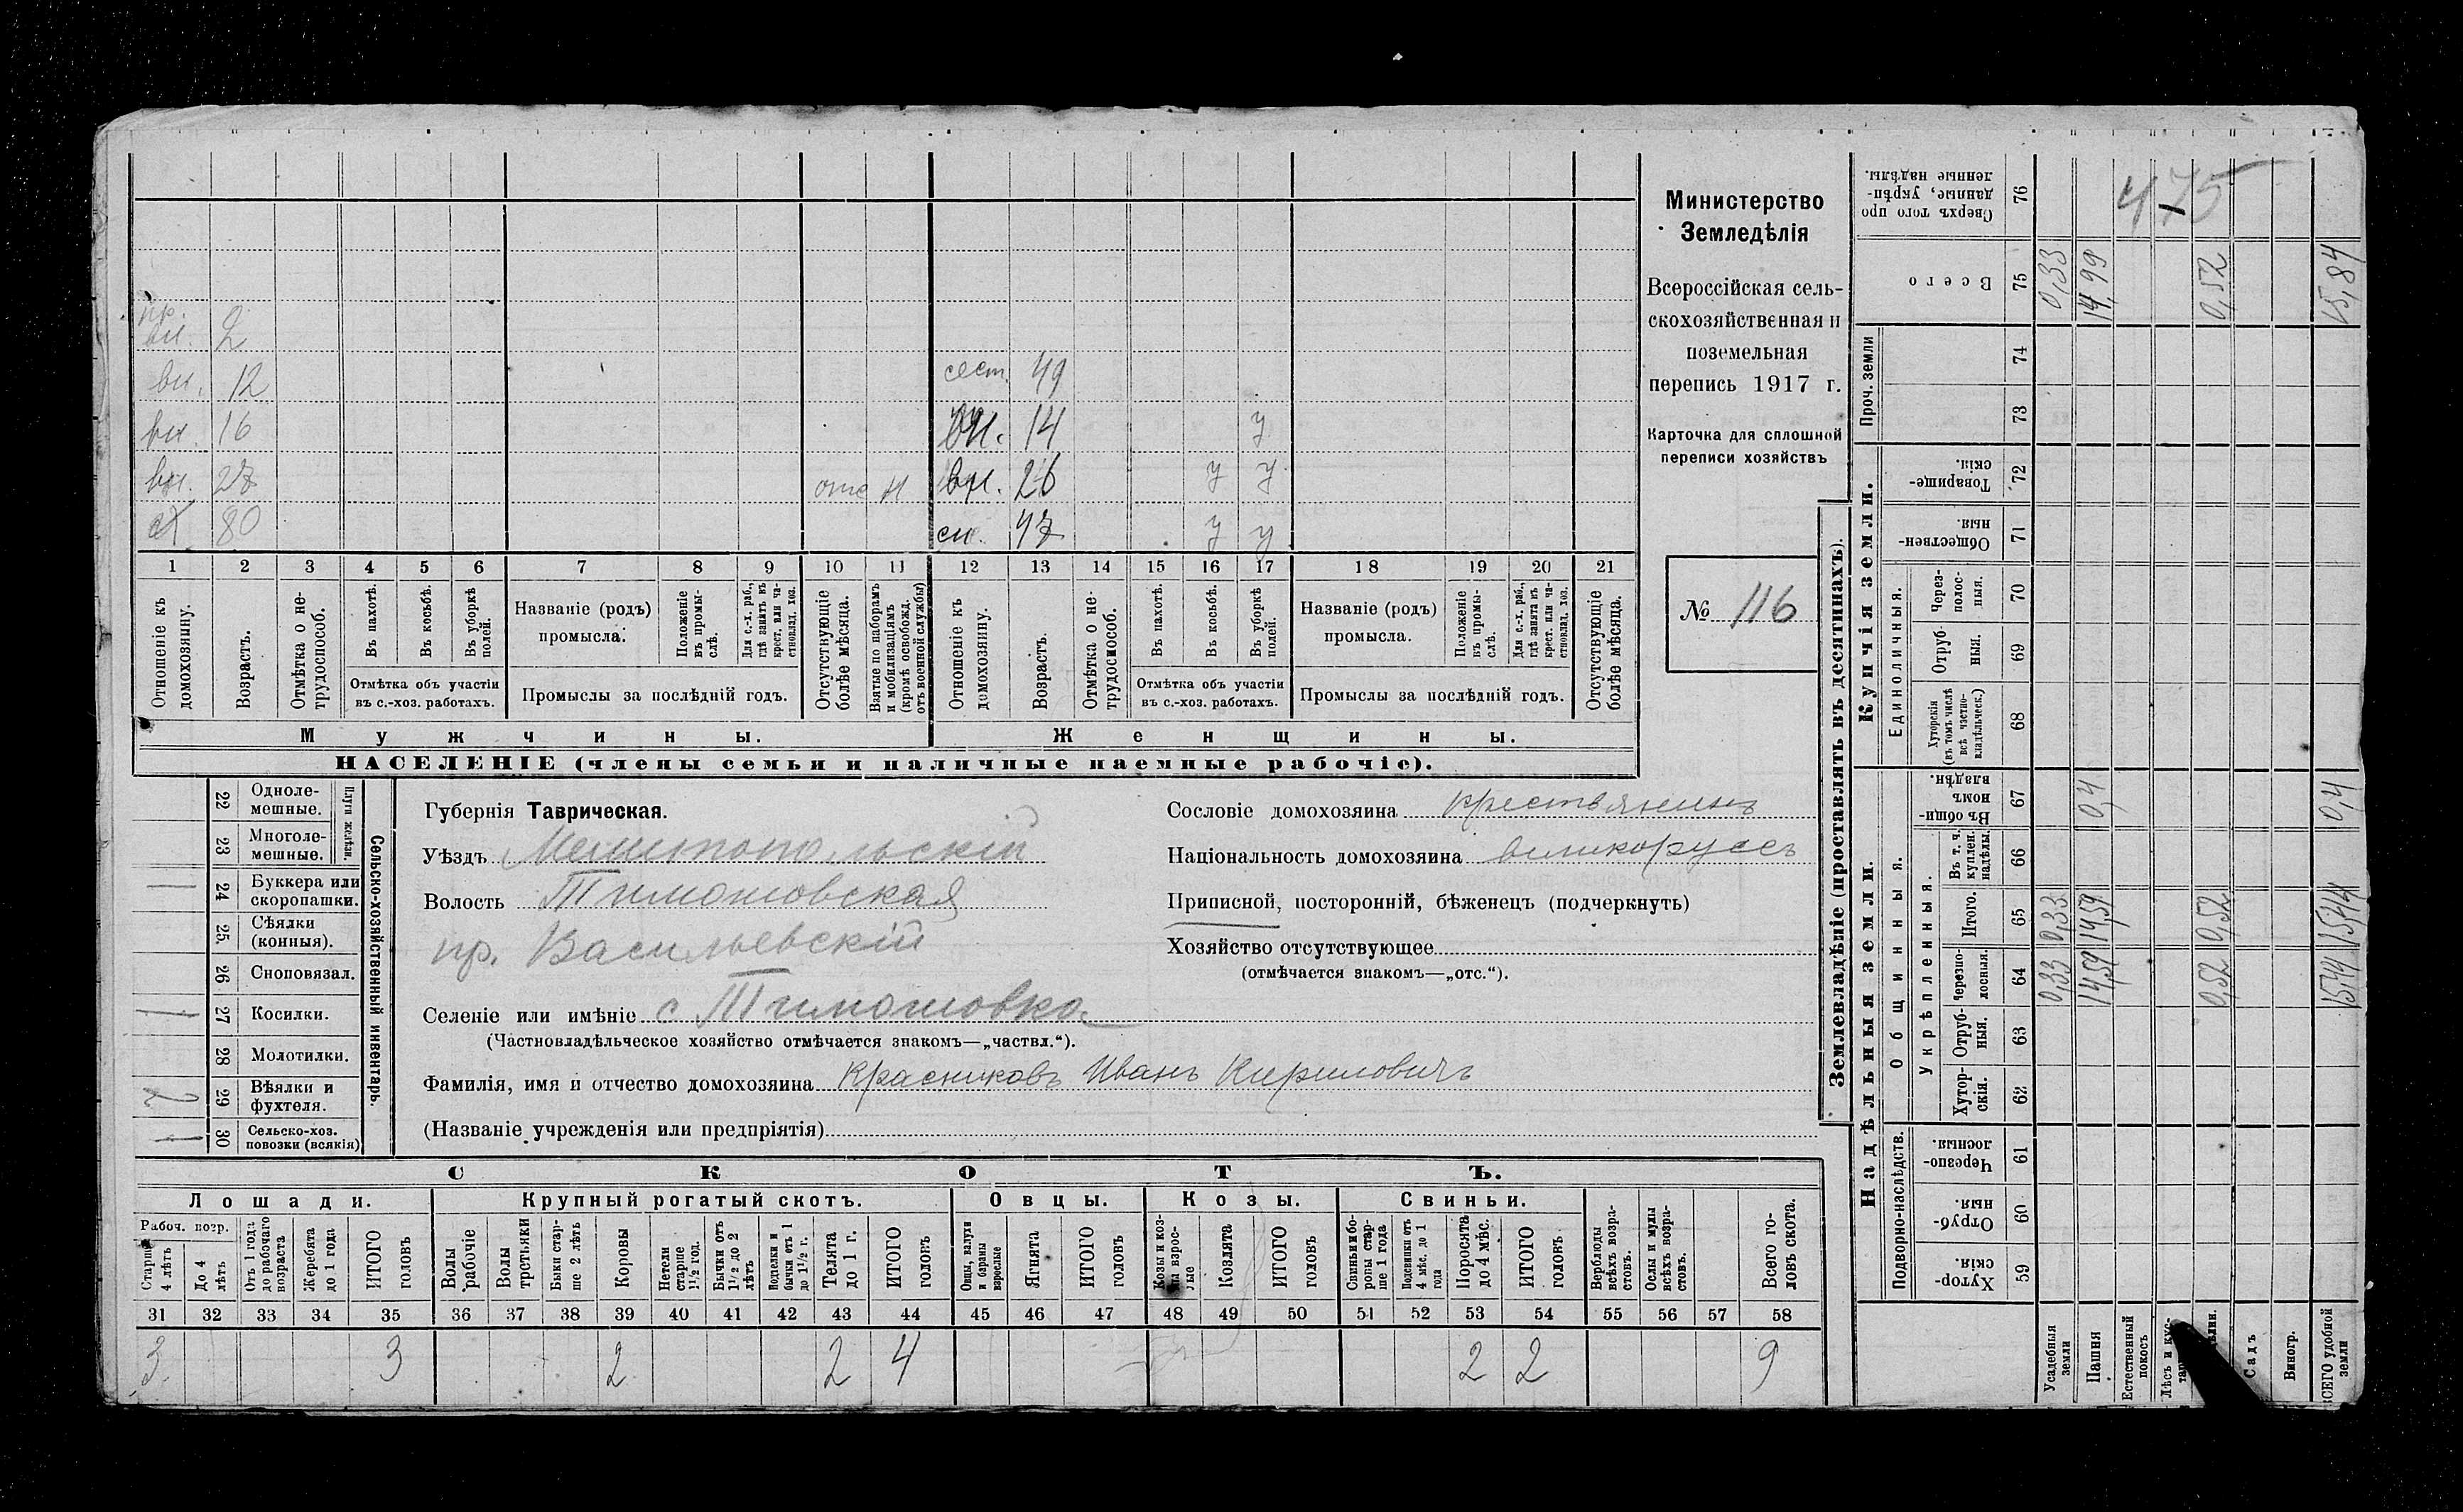 пр.
вн. 2
вн. 12
вн. 16
вн. 27
80
отс
сест. 49
вн. 14 у
вн. 26 у у
сн. 47 у у
1 2 3 4 5 6 7 8 9 10 11 12 13 14 15 16 17 18 19 20 21
Отношеніе къ домохозяину.
Возрастъ.
Отмѣтка о не-трудоспособ.
Въ пахотѣ.
Въ косьбѣ.
Въ уборкѣ полей.
Отмѣтка объ участіи
въ с.-хоз. работахъ.
Названіе (родъ)
промысла.
Положеніе въ промы-слѣ.
Для с.-х. раб., гдѣ занятъ въ крест. или ча-стновлад. хоз.
Промыслы за послѣдній годъ.
Отсутствующіе болѣе мѣсяца.
Взятые по наборамъ и мобилизаціямъ (кромѣ освобожд. отъ военной службы)
Отношеніе къ домохозяину.
Возрастъ.
Отмѣтка о не-трудоспособ.
Въ пахотѣ.
Въ косьбѣ.
Въ уборкѣ полей.
Отмѣтка объ участіи
въ с.-хоз. работахъ.
Названіе (родъ)
промысла.
Положеніе въ промы-слѣ.
Для с.-х. раб., гдѣ занята въ крест. или ча-стновлад. хоз.
Промыслы за послѣдній годъ.
Отсутствующіе болѣе мѣсяца.
Мужчины.
Женщины.
НАСЕЛЕНІЕ (члены семьи и наличные наемные рабочіе).
Министерство
Земледѣлія
Всероссійская сель-
скохозяйственная и
поземельная
перепись 1917 г.
Карточка для сплошной
переписи хозяйствъ
№ 116
22 Одноле-мешные.
23 Многоле-мешные.
Плуги желѣзн.
24 Буккера или скоропашки.
25. Сѣялки (конныя).
26 Сноповязал.
27 Косилки. 1
28 Молотилки.
29 Вѣялки и фухтеля.
30 Сельско-хоз. повозки (всякія) 1
Сельско-хозяйственный инвентарь.
Губернія Таврическая.
Уѣздъ Мелитопольскій
Волость Тимошовская
пр. Васильевскій
Селеніе или имѣніе с Тимошовка
(Частновладѣльческое хозяйство отмѣчается знакомъ—„частвл.“).
Фамилія, имя и отчество домохозяина Красниковъ Иванъ Кириловичъ
(Названіе учрежденія или предпріятія)
Сословіе домохозяина крестьянинъ
Національность домохозяина великоруссъ
Приписной, посторонній, бѣженецъ (подчеркнуть)
Хозяйство отсутствующее
(отмѣчается знакомъ—„отс.“).
СКОТЪ.
Лошади.
Крупный рогатый скотъ.
Овцы.
Козы.
Свиньи.
Рабоч. возр.
Старше 4 лѣтъ
До 4 лѣтъ
Отъ 1 года до рабочаго возраста
Жеребята до 1 года
ИТОГО головъ
Волы рабочіе
Волы третьяки
Быки стар-ше 2 лѣтъ
Коровы
Нетели старше 1½ год.
Бычки отъ 1½ до 2 лѣтъ
Подтелки и бычки отъ 1 до 1½ г.
Телята до 1 г.
ИТОГО головъ
Овцы, валухи и бараны взрослые
Ягнята
ИТОГО головъ
Козы и коз-лы взрос-лые
Козлята
ИТОГО головъ
Свиньи и бо-ровы стар-ше 1 года
Подсвинки отъ 4 мѣс. до 1 года
Поросята до 4 мѣс.
ИТОГО головъ
Верблюды всѣхъ возра-стовъ.
Ослы и мулы всѣхъ возра-стовъ.
Всего го-ловъ скота.
31 32 33 34 35 36 37 38 39 40 41 42 43 44 45 46 47 48 49 50 51 52 53 54 55 56 57 58
3 3 2 2 4 2 2 9
Землевладѣніе (проставлять въ десятинахъ).
Надѣльныя земли.
Купчія земли.
Проч. земли
Подворно-наслѣдств.
Общинныя.
Укрѣпленныя.
Единоличныя.
Сверхъ того про-данные, укрѣп-ленные надѣлы. 76
475
Всего 75 0,33 14,99 0,52 15,84
74
73
Товарище-скія. 72
Обществен-ныя. 71
Через-полос-ныя. 70
Отруб-ныя. 69
Хуторскія (въ томъ числѣ всѣ частно-владѣльческ.) 68
Въ общи-номъ владѣн. 67 0,4 0,4
Въ т. ч. куплен. надѣлы. 66
Итого. 65 0,33 14,59 0,52 15,44
Черезпо-лосныя. 64 0,33 14,59 0,52 15,44
Отруб-ныя. 63
Хутор-скія. 62
Черезпо-лосныя 61
Отруб-ныя. 60
Хутор-скія. 59
Усадебныя земли
Пашня
Естественный покосъ
Лѣсъ и кус-
Садъ
Виногр.
ВСЕГО удобной земли